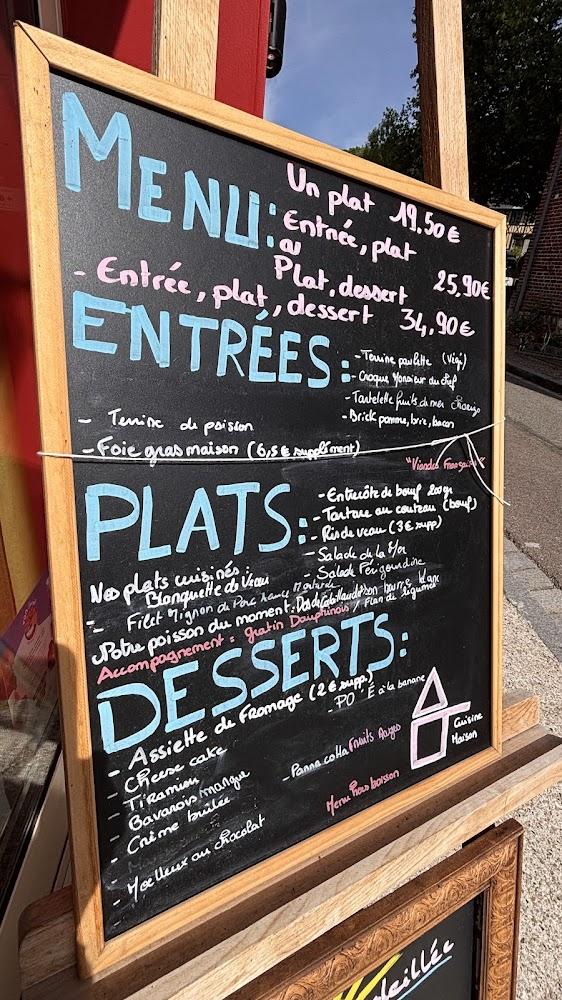 MENU:
Un plat 19.50€
Entrée, plat
ou
Plat, dessert 25,90€
- Entrée, plat, dessert 34,90€
ENTRÉES:
- Terrine paulette (Végi)
- Croque Monsieur du chef
- Tartelette fruits de mer
- Brick pomme, brie, bacon
- Terrine de poisson
- Foie gras maison (6,5€ supplément)
"Viandes Françaises"
PLATS:
- Entrecôte de bœuf 200gr
- Tartare au couteau (bœuf)
- Ris de veau (3€ supp)
- Salade de la
Salade Périgourdine
Nos plats cuisinés:
- Blanquette de veau
- Filet Mignon de Porc sauce Moutarde
Notre poisson du moment: Dos de Cabillaud son beurre blanc
Accompagnement: gratin Dauphinois / Flan de légumes
DESSERTS:
- Assiette de Fromage (2€ supp.)
- PO" É à la banane
- Cheese cake
- Tiramisu
- Bavarois mangue
- Crème brulée
- Panna cotta Fruits Rouges
- Moelleux au chocolat
Menu hors boisson
Cuisine
Maison